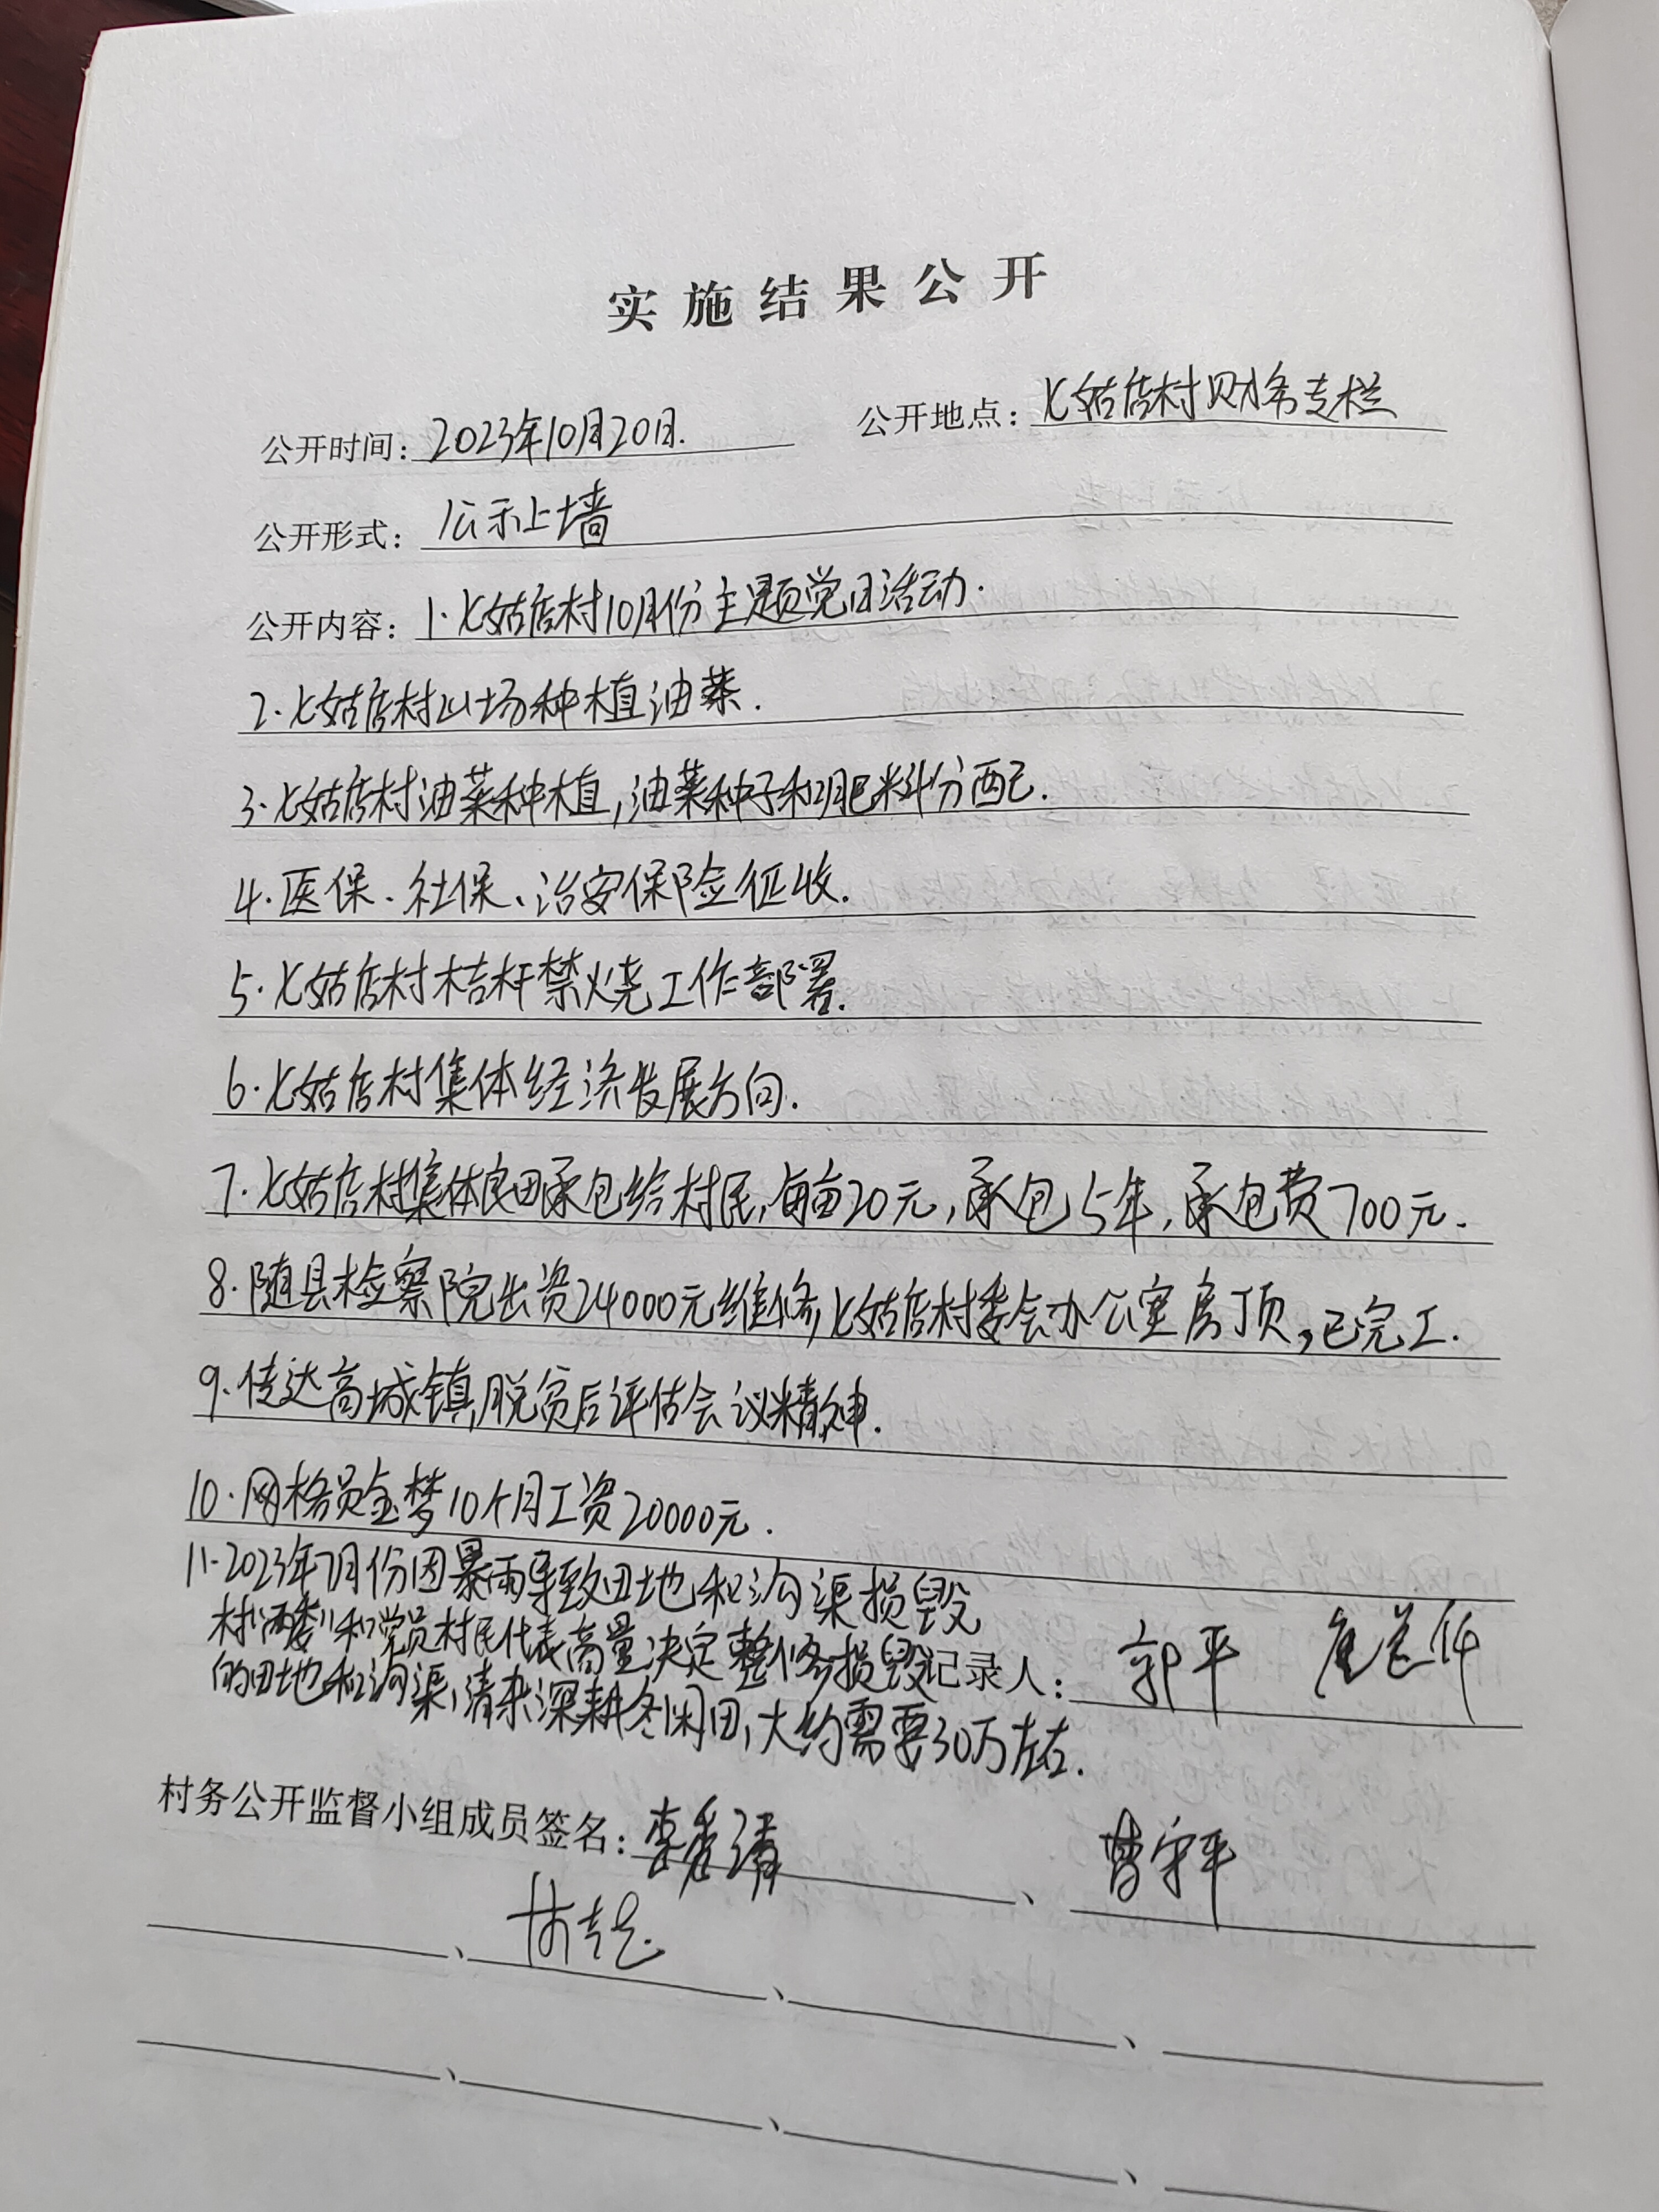 实施结果公开
公开时间：2023年10月20日. 公开地点：七姑店村财务专栏
公开形式：公示上墙
公开内容：1.七姑店村10月份主题党日活动.
2.七姑店村山场种植油菜.
3.七姑店村油菜种植,油菜种子和肥料分配.
4.医保、社保、治安保险征收.
5.七姑店村桔杆禁烧工作部署.
6.七姑店村集体经济发展方向.
7.七姑店村集体良田承包给村民,每亩20元,承包5年,承包费700元.
8.随县检察院出资24000元维修,七姑店村委会办公室房顶,已完工.
9.传达高城镇,脱贫后评估会议精神.
10.网格员金梦10个月工资20000元.
11.2023年7月份因暴雨导致田地和沟渠损毁
村"两委"和党员村民代表商量决定整修损毁
的田地和沟渠,清杂深耕冬闲田,大约需要30万左右.
记录人：郭平
村务公开监督小组成员签名：李秀清、曹宇平